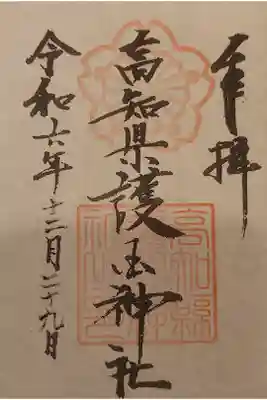 奉拝
高知県護国神社
高知縣
令和六年十二月二十九日